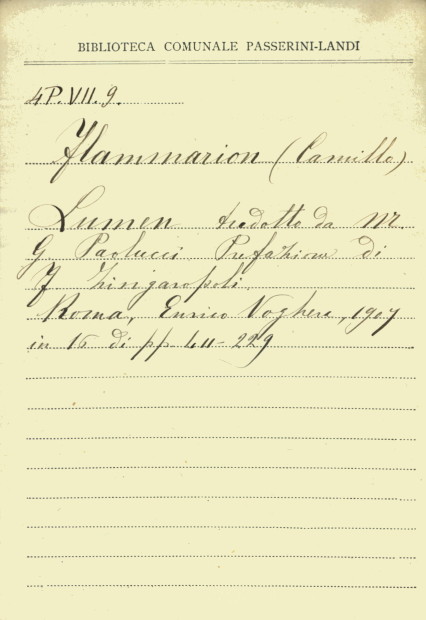 BIBLIOTECA COMUNALE PASSERINI-LANDI
4P.VII.9.
Flammarion (Camillo)
Lumen tradotto da M.
G. Paolucci. Prefazione di
F. Zingaropoli.
Roma, Enrico Voghera, 1907
in 16 di pp. 229